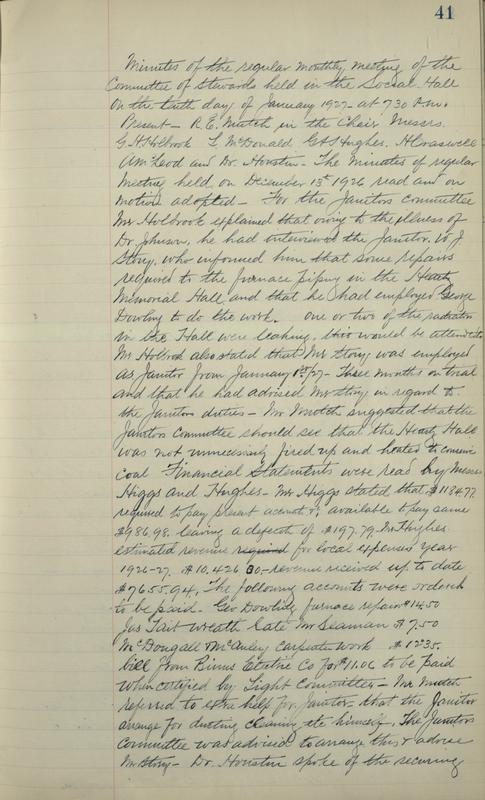 41
Minutes of the regular monthly meeting of the
Committee of Stewards held in the Social Hall
on the tenth day of January 1927 at 7 30 P.m.
Present - R.E. Mutch in the Chair, Messrs.
G.H. Holbrook L McDonald G.S. Hughes. H Craswell
McLeod and Dr. Houston - The minutes of regular
Meeting held on December 13th 1926 read and on
motion adopted - For the Janitors Committee
Mr Holbrook explained that owing to the illness of
Dr Johnson, he had interviewed the Janitor, W J
Story, who informed him that some repairs
required to the furnace piping in the Heartz
Memorial Hall and that he had employed George
Dowling to do the work. One or two of the radiators
in the Hall were leaking, this would be attended to
Mr Holbrook also stated that Mr Story was employed
as Janitor from January 1st/27 - Three months on trial
and that he had advised Mr Story in regard to
the Janitors duties - Mr Mutch suggested that the
Janitors Committee should see that the Heartz Hall
was not unnecessarily fired up and heated to conserve
coal Financial Statements were read by Messrs
Higgs and Hughes - Mr Higgs stated that $1184.77
required to pay present accounts, available to pay same
$986.98. leaving a deficit of $197.79. Mr Hughes
estimated revenue required for local expenses year
1926-27. $10.426 00 - revenue received up to date
$7655.94. The following accounts were ordered
to be paid - Geo Dowling furnace repairs $14.50
Jas Tait wreath late Mr Seaman $7.50
McDougall McAuley carpenter work $12.35.
bill from Binns Electric Co for $11.06 to be paid
when certified by Light Committee - Mr Mutch
referred to extra help for Janitor - that the Janitor
arrange for dusting cleaning etc himself, The Janitors
Committee was advised to arrange this & advise
Mr Story - Dr. Houston spoke of the securing